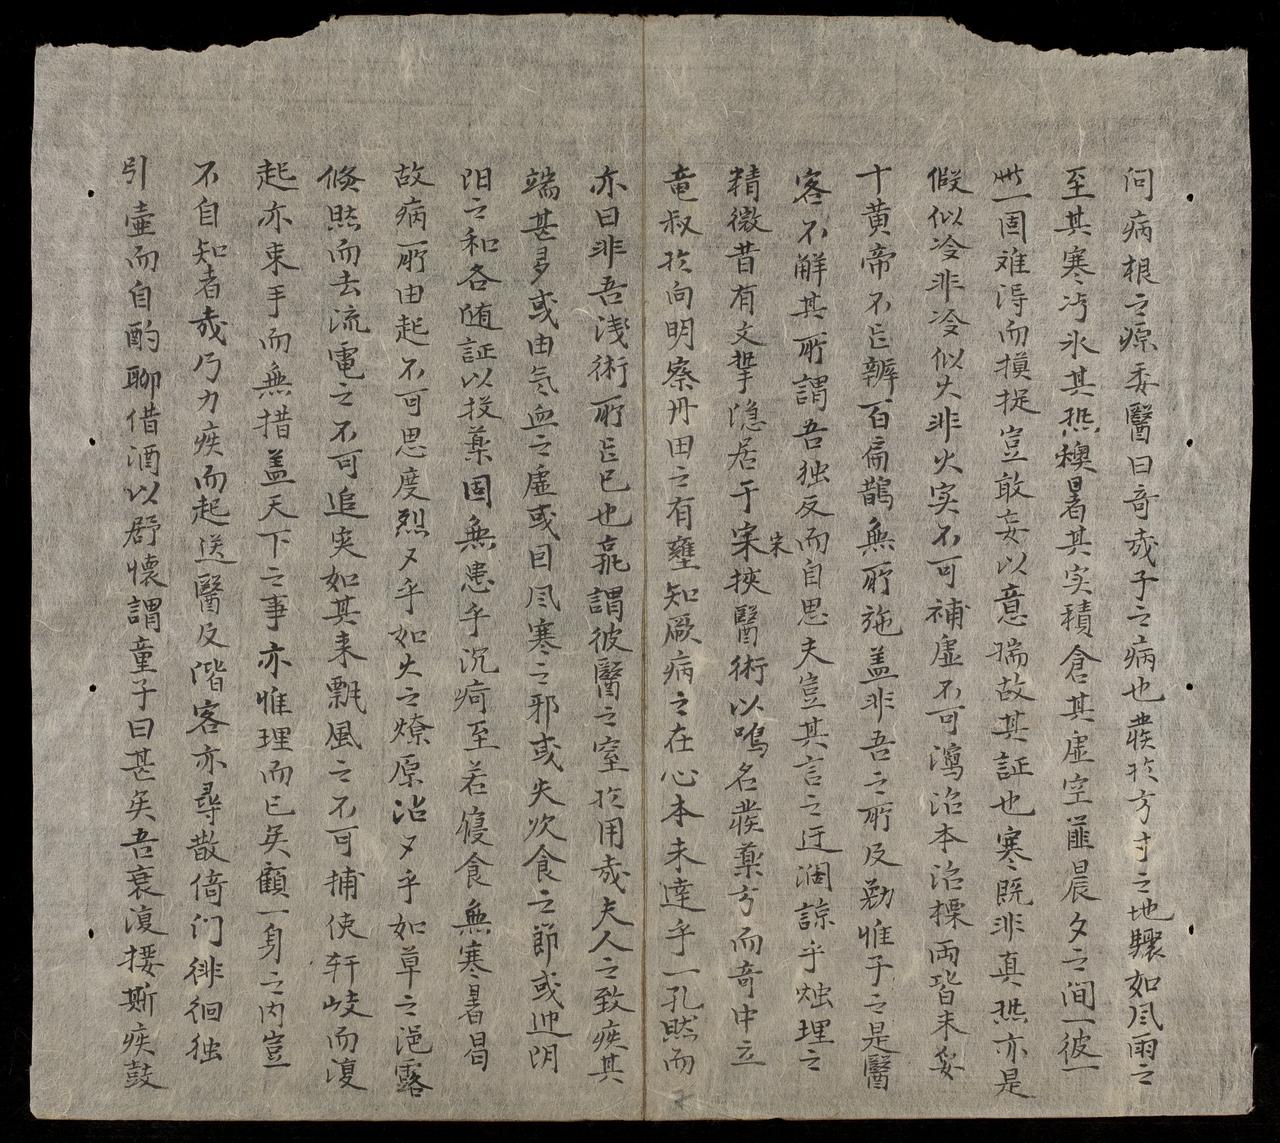 問病根之源委醫曰奇哉子之病也發於方寸之地驟如风雨之
至其寒冱氷其热燠暑其实積倉其虛空匪晨夕之间一彼一
此固难淂而摸捉豈敢妄以意揣故其証也寒既非真热亦是
假似冷非冷似火非火实不可補虛不可瀉治本治標両皆未妥
十黄帝不䏻辨百扁鵲無所施盖非吾之所及勛惟子之是醫
客不觧其所謂吾独反而自思夫豈其言之迂濶諒乎烛理之
精微昔有文挚隐居于宋挾醫術以鳴名發藥方而奇中立
宋
竜叔扵向明察丹田之有壅知厥病之在心本未達乎一孔然而
亦曰非吾浅術所䏻已也孰謂彼醫之窒扵用哉夫人之致疾其
端甚多或由氣血之虛或因风寒之邪或失飲食之節或迎阴
阳之和各随証以投藥固無患乎沉疴至若寢食無寒暑曷
故病所由起不可思度烈々乎如火之燎原沾々乎如草之浥露
倐然而去流電之不可追突如其来飄風之不可捕使軒岐而復
起亦束手而無措盖天下之事亦惟理而已矣顧一身之内豈
不自知者哉乃力疾而起送醫及階客亦尋散倚门徘徊独
引壷而自酌聊借酒以舒懷謂童子曰甚矣吾衰復撄斯疾鼓